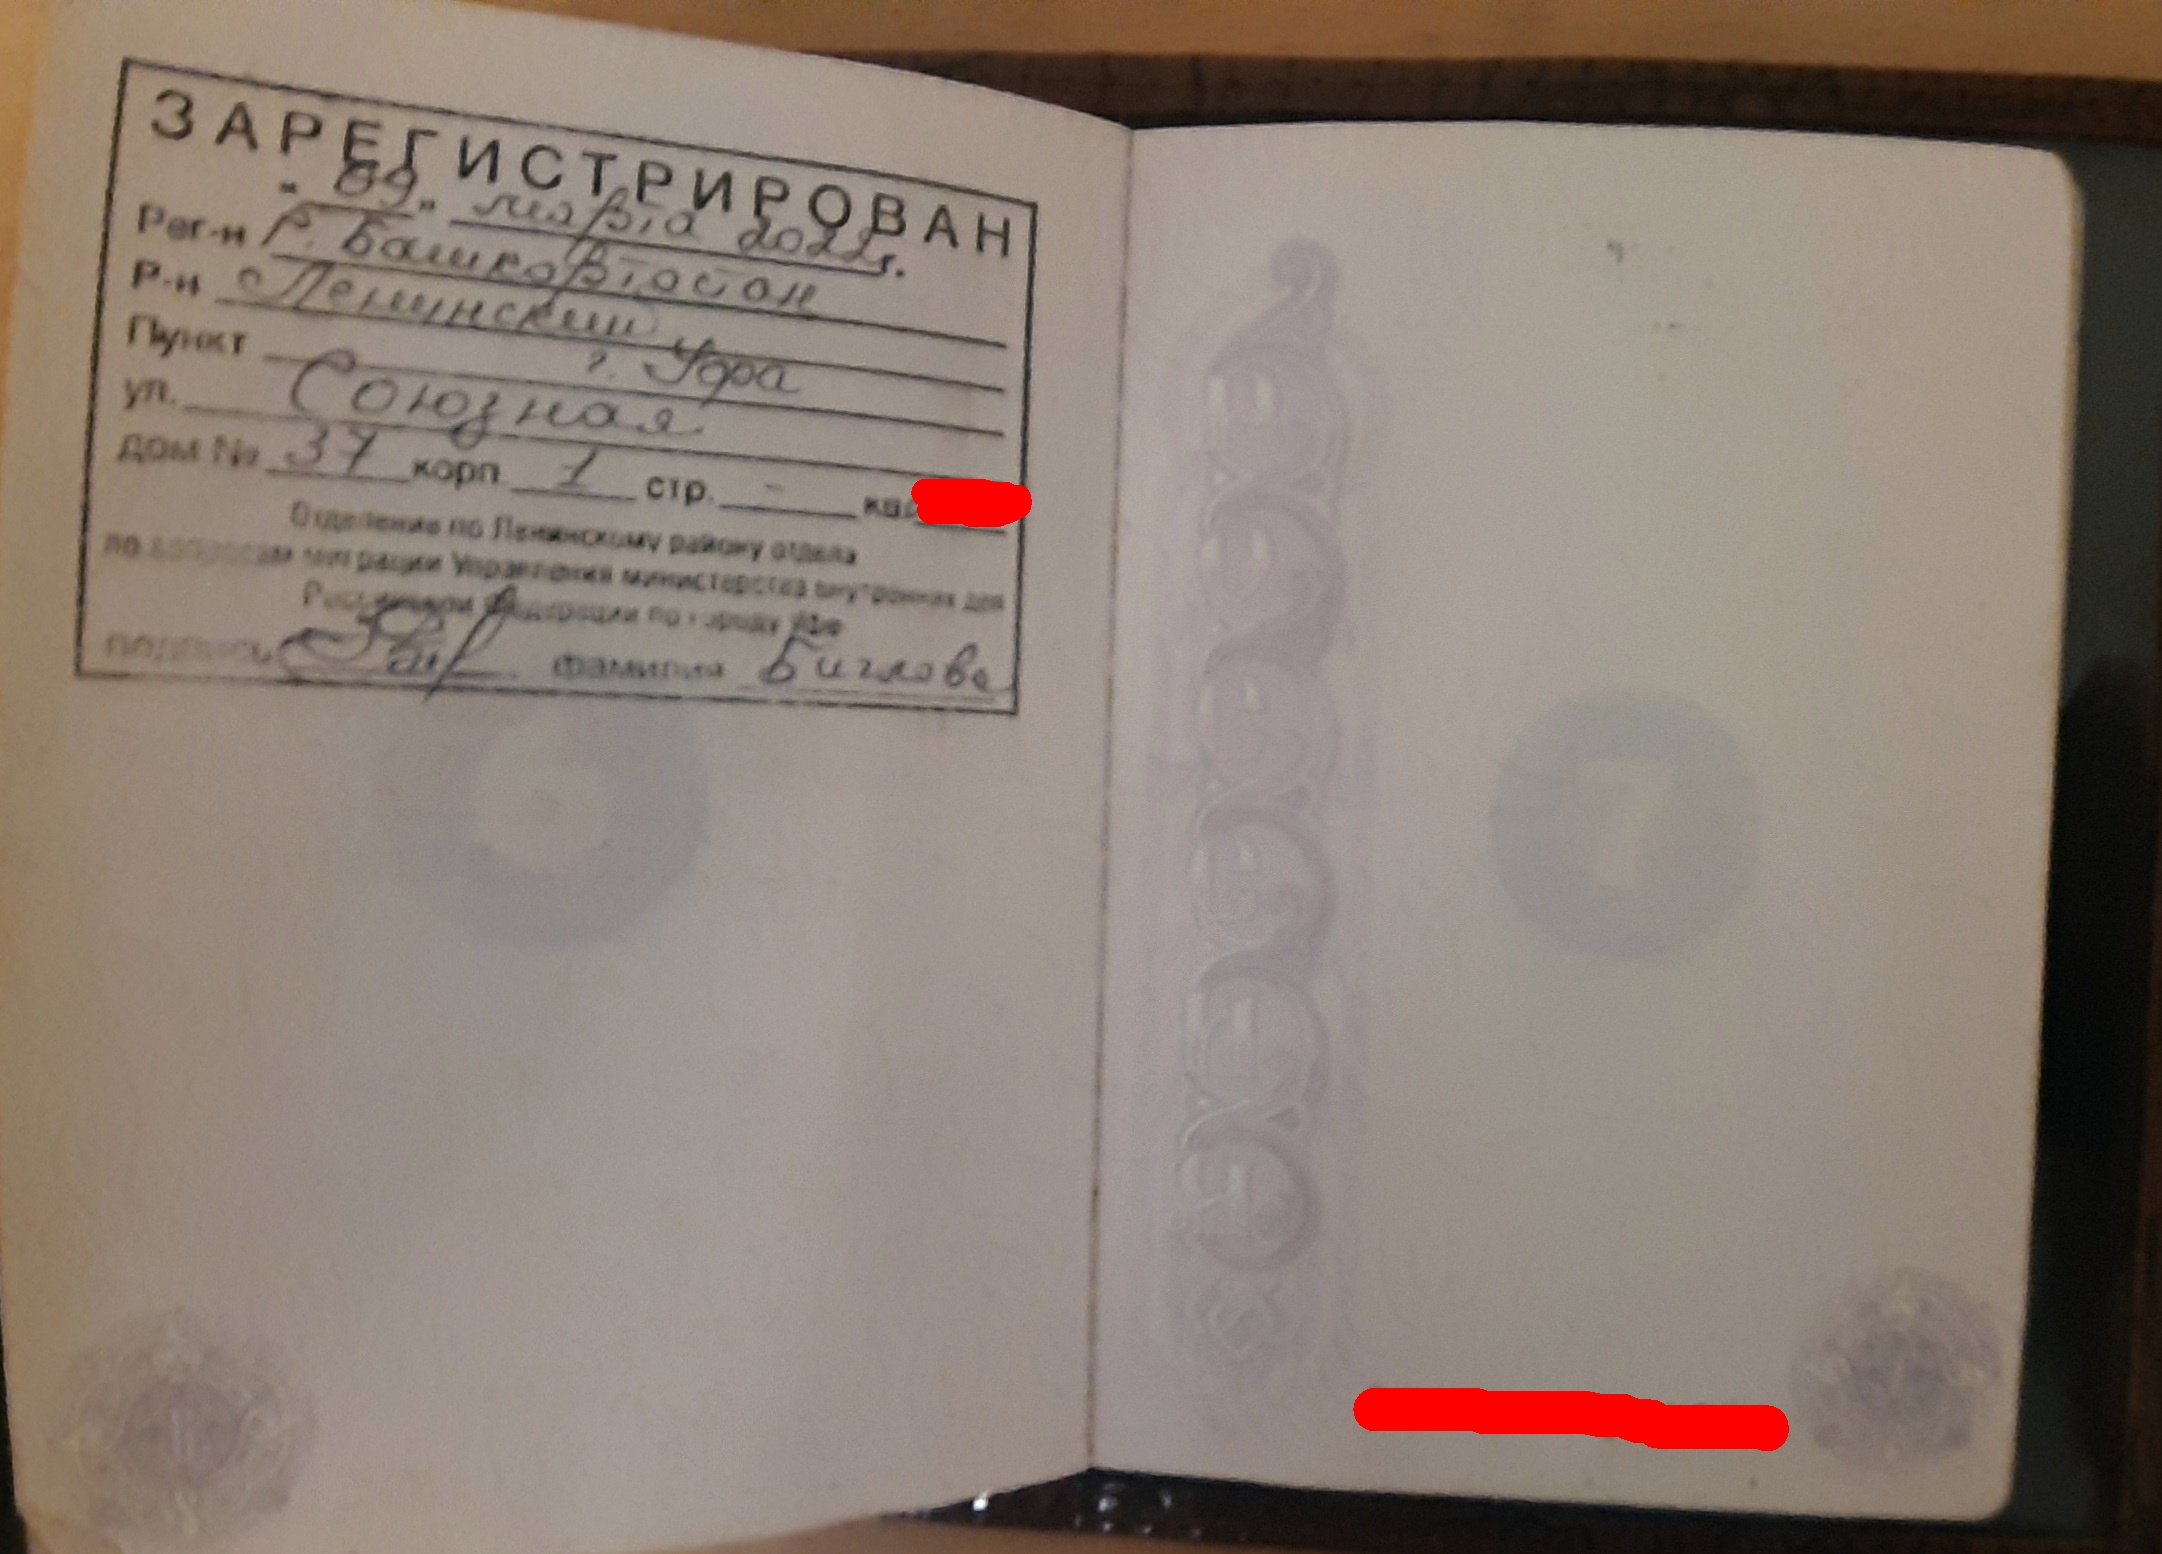 ЗАРЕГИСТРИРОВАН
"09" марта 2022г.
Рег-н Р. Башкортостан
Р-н Ленинский
Пункт г. Уфа
ул. Союзная
дом № 37 корп. 1 стр. - кв.
Отделение по Ленинскому району отдела
по вопросам миграции Управления министерства внутренних дел
Российской Федерации по городу Уфе
подпись фамилия Биглова
7